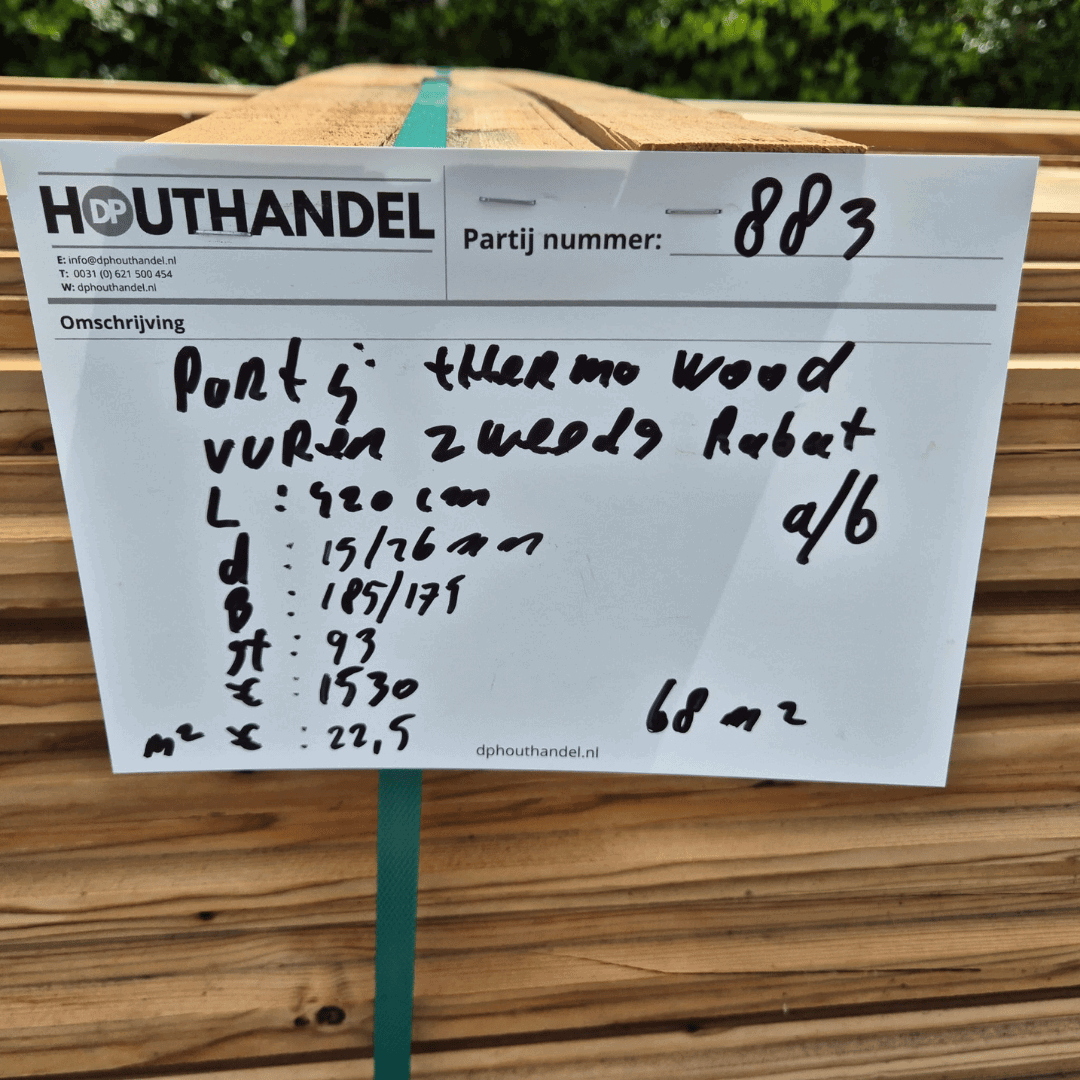 HOUTHANDEL
DP
E: info@dphouthandel.nl
T: 0031 (0) 621 500 454
W: dphouthandel.nl
Partij nummer: 883
Omschrijving
Partij thermo wood
vuren zweeds Rabat
L : 420 cm a/b
d : 15/26 mm
B : 185/175
st : 93
€ : 1530
68 m²
m² € : 22,5
dphouthandel.nl